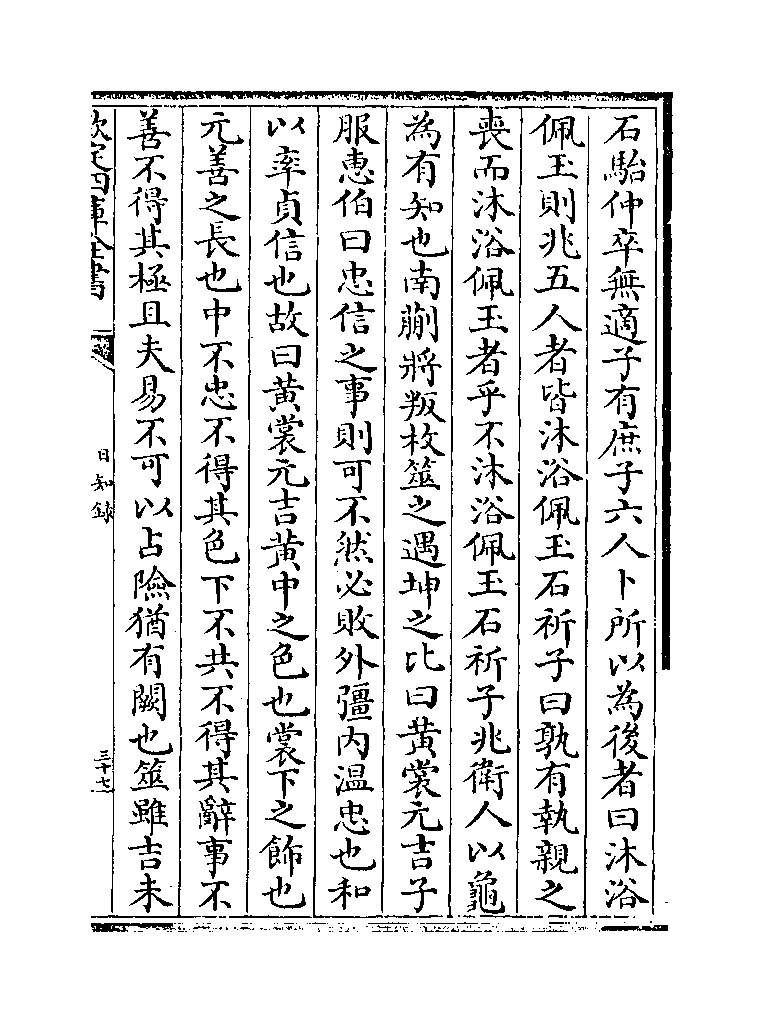 石駘仲卒無適子有庶子六人卜所以為後者曰沐浴
佩玉則兆五人者皆沐浴佩玉石祈子曰孰有執親之
喪而沐浴佩玉者乎不沐浴佩玉石祈子兆衛人以龜
為有知也南蒯將叛枚筮之遇坤之比曰黄裳元吉子
服恵伯曰忠信之事則可不然必敗外彊内温忠也和
以率貞信也故曰黄裳元吉黄中之色也裳下之飾也
元善之長也中不忠不得其色下不共不得其辭事不
善不得其極且夫易不可以占險猶有闕也筮雖吉未
欽定四庫全書
日知錄
三十七